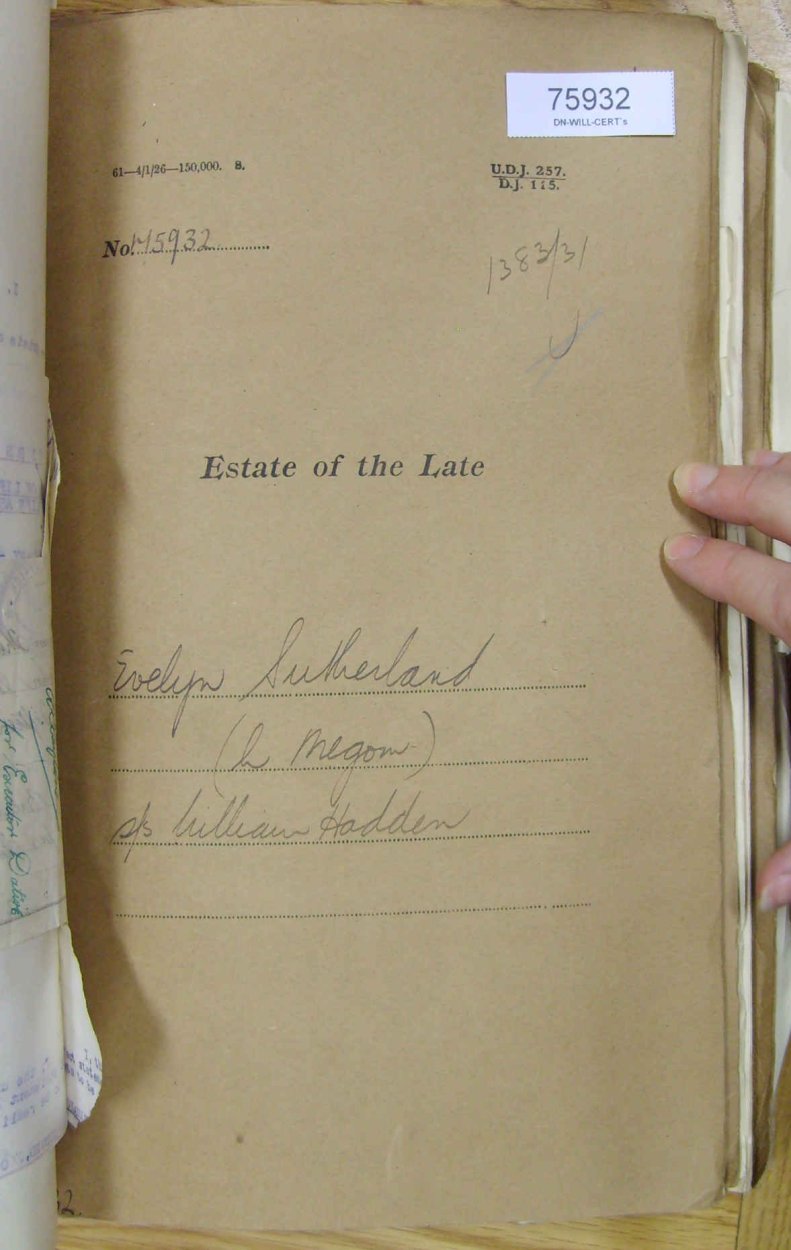 75932
DN-WILL-CERT's
61—4/1/26—150,000. S.
U.D.J. 257.
D.J. 115.
No. 75932
1383/31
Estate of the Late
Evelyn Sutherland
(b Megom)
s/s William Hadden
for Executor Dative
32.